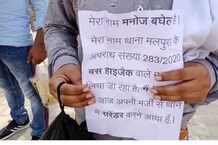 मेरा नाम मनोज बघेल है।
मेरा नाम थाना मलपुरा के
अपराध संख्या 283/2020
बस हाइजेक वाले
लिया जा रहा है, मैं
आज अपनी मर्जी से थाने
में सरेंडर करने आया हूँ।